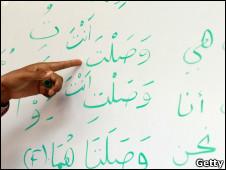 هي وَصَلْتَ أَنْتَ
أنا وَصَلْتِ أَنْتِ
نحن وَصَلَتَا هُمَا (F)
Getty